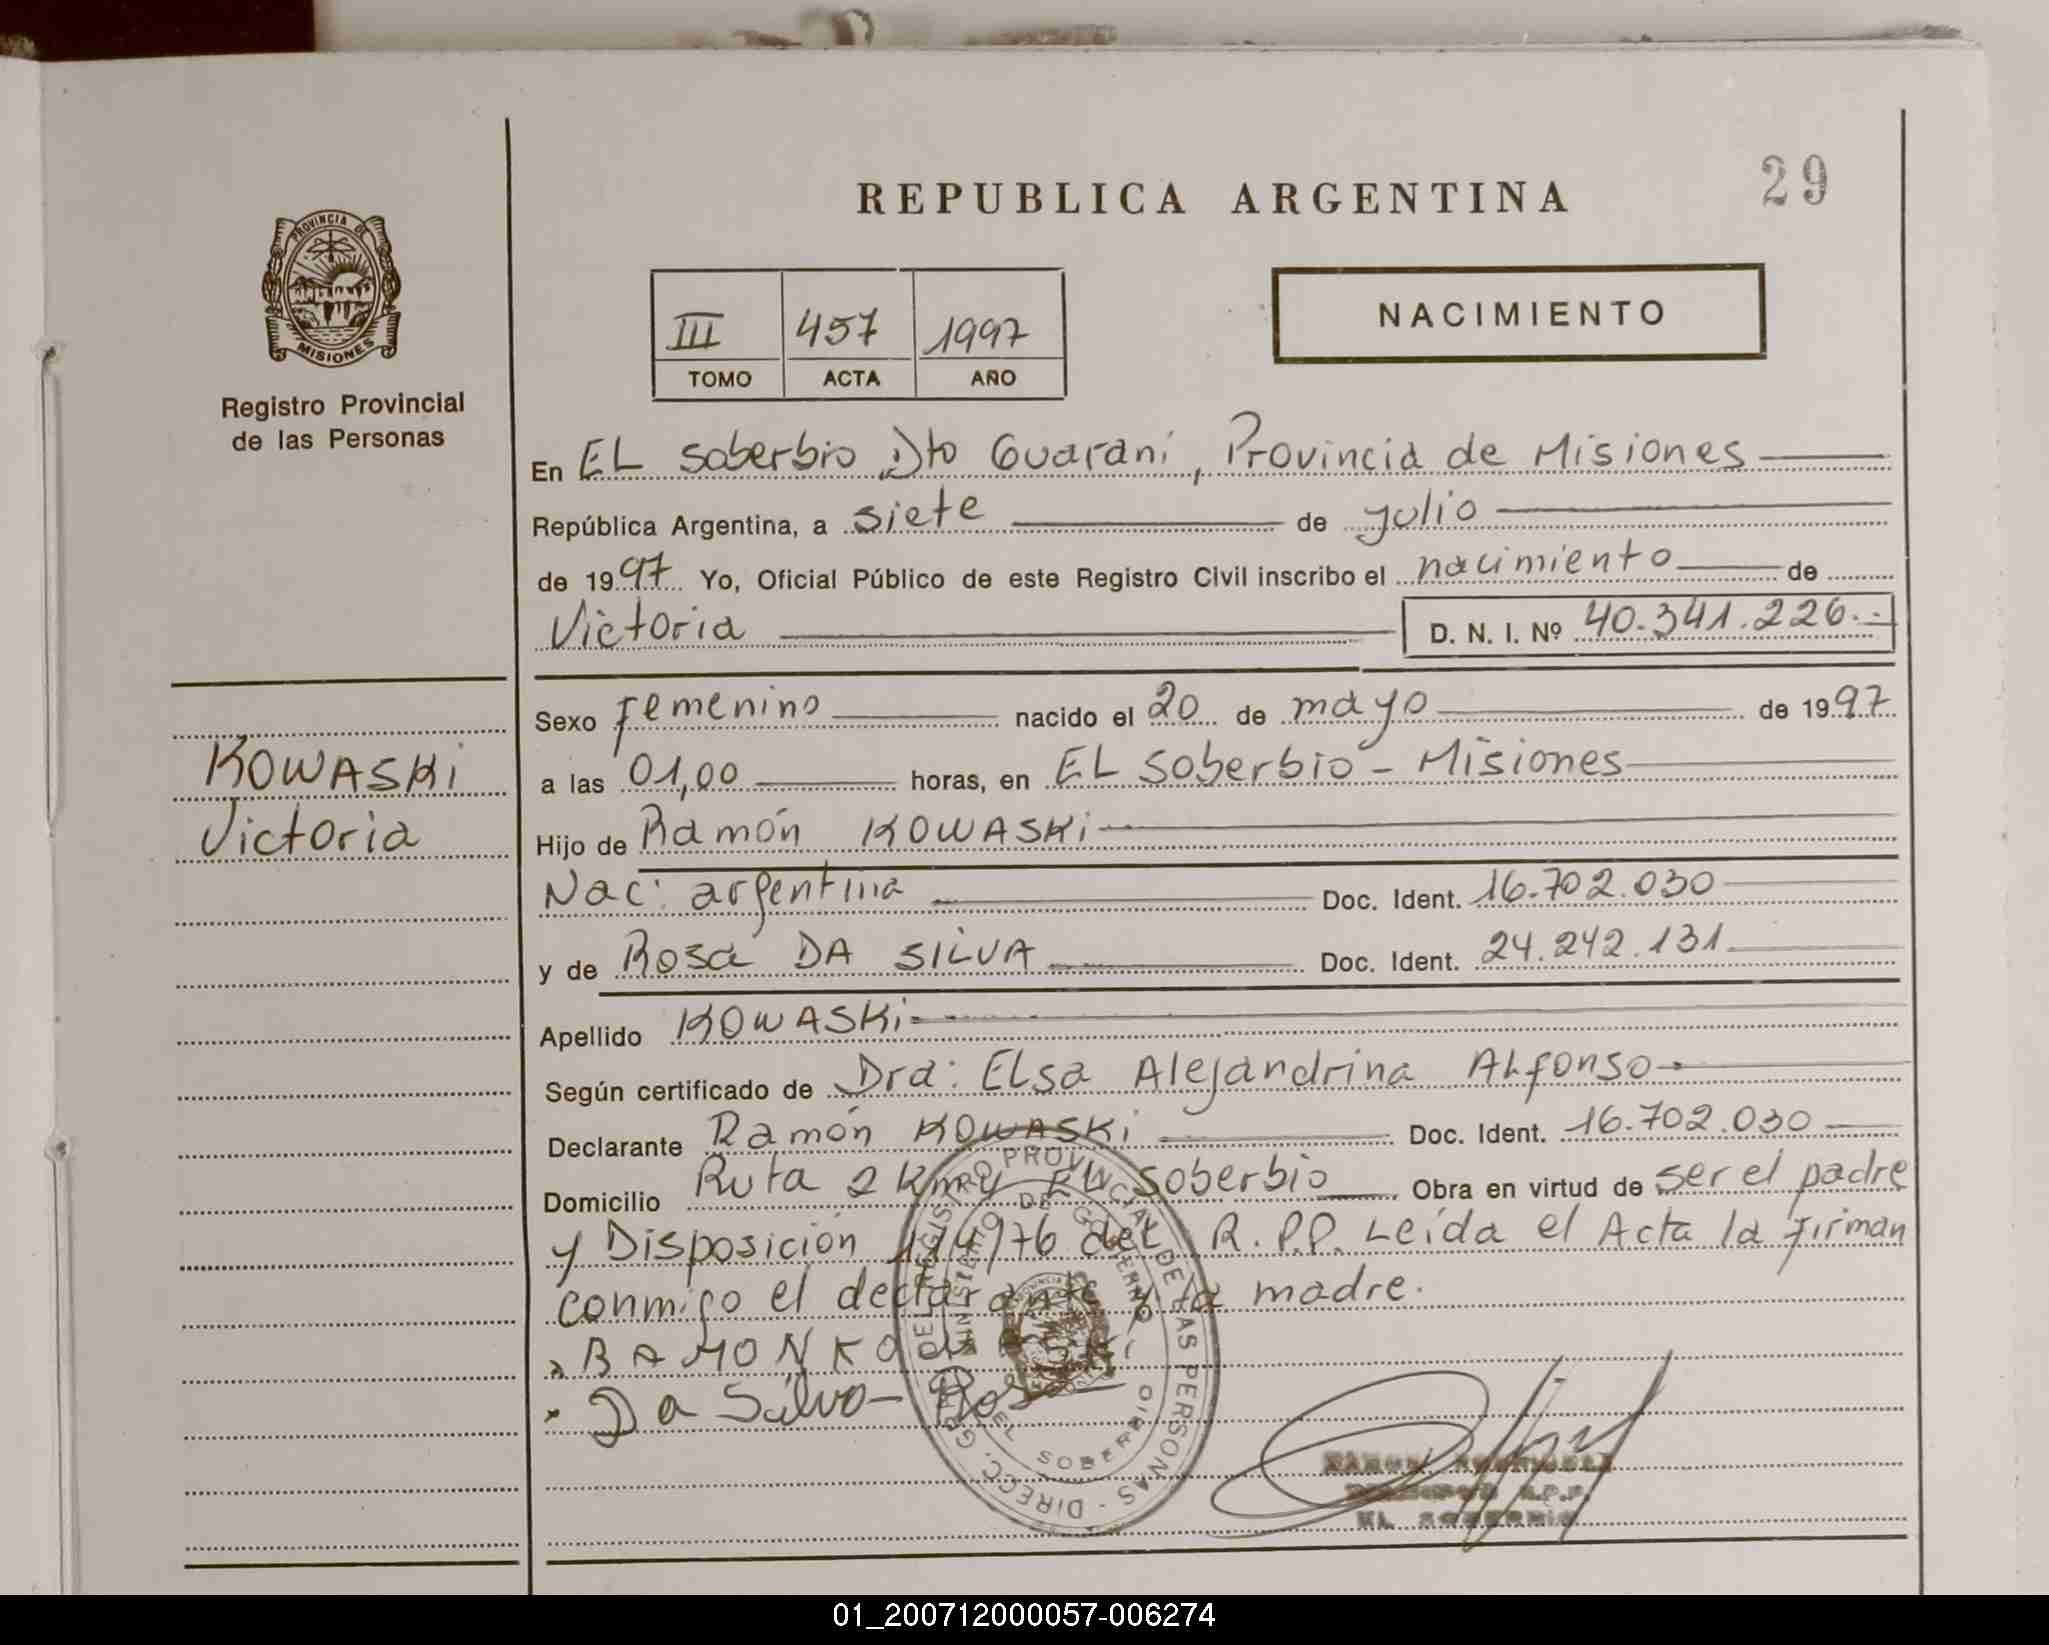 29
REPUBLICA ARGENTINA
PROVINCIA DE
MISIONES
Registro Provincial
de las Personas
III 457 1997
TOMO ACTA AÑO
NACIMIENTO
En EL Soberbio Dto Guaraní, Provincia de Misiones
República Argentina, a siete de julio
de 1997 Yo, Oficial Público de este Registro Civil inscribo el nacimiento de
Victoria D. N. I. Nº 40.341.226.-
KOWASKi
Victoria
Sexo femenino nacido el 20 de mayo de 1997
a las 01,00 horas, en EL Soberbio - Misiones
Hijo de Ramón KOWASKi
Nac: argentina Doc. Ident. 16.702.030
y de Rosa DA SILVA Doc. Ident. 24.242.131
Apellido KOWASKi
Según certificado de Dra: ELsa Alejandrina ALfonso
Declarante Ramón KOWASKi Doc. Ident. 16.702.030
Domicilio Ruta 2 Soberbio Obra en virtud de ser el padre
y Disposición del R.P.P. Leída el Acta la firman
conmigo el declarante y la madre.
BAMON
Da Silva - Rosa
DIRECC. GRAL. DEL REGISTRO PROVINCIAL DE LAS PERSONAS
MINISTERIO DE GOBIERNO
EL SOBERBIO
R.P.P.
EL SOBERBIO
01_200712000057-006274